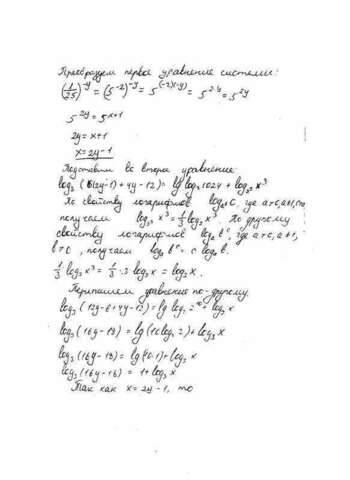 Преобразуем первое уравнение системы:
(1/25)^-y = (5^-2)^-y = 5^(-2)(-y) = 5^2·y = 5^2y
5^2y = 5^x+1
2y = x+1
x = 2y-1
Подставим во второе уравнение:
log₃ (6(2y-1) + 4y - 12) = lg log₂ 1024 + log₃³ x³
По свойству логарифмов, где a>0, a≠1,
получаем log₃³ x³ = 1/3 log₃ x³. По другому
свойству логарифмов log_a b^c, где a>0, a≠1,
b>0, получаем log_a b^c = c log_a b.
1/3 log₃ x³ = 1/3 · 3 log₃ x = log₃ x.
Перепишем уравнение по-другому.
log₃ (12y - 6 + 4y - 12) = lg log₂ 2^10 + log₃ x
log₃ (16y - 18) = lg (10 log₂ 2) + log₃ x
log₃ (16y - 18) = lg (10·1) + log₃ x
log₃ (16y - 18) = 1 + log₃ x
Так как x = 2y - 1, то